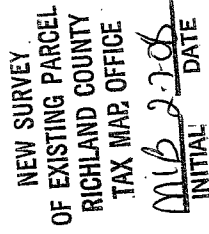 NEW SURVEY
OF EXISTING PARCEL
RICHLAND COUNTY
TAX MAP OFFICE
MIB 2-7-08
INITIAL DATE